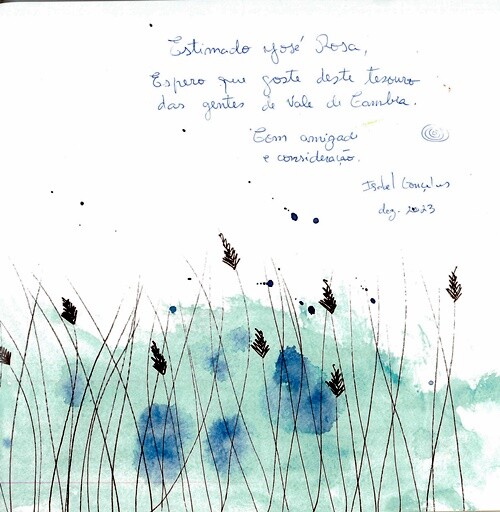 Estimado José Rosa,
Espero que goste deste tesouro
das gentes de Vale de Cambra.
Com amizade
e consideração.
Isabel Gonçalves
dez. 2023